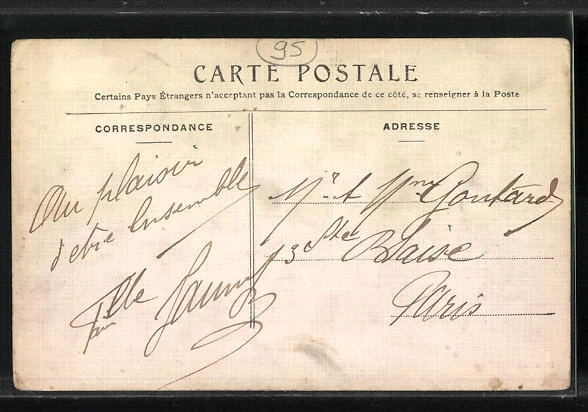 95
CARTE POSTALE
Certains Pays Étrangers n'acceptant pas la Correspondance de ce côté, se renseigner à la Poste
CORRESPONDANCE
Au plaisir
d'etre Ensemble
ADRESSE
Mr et Mme Goutard
Blaise
Paris